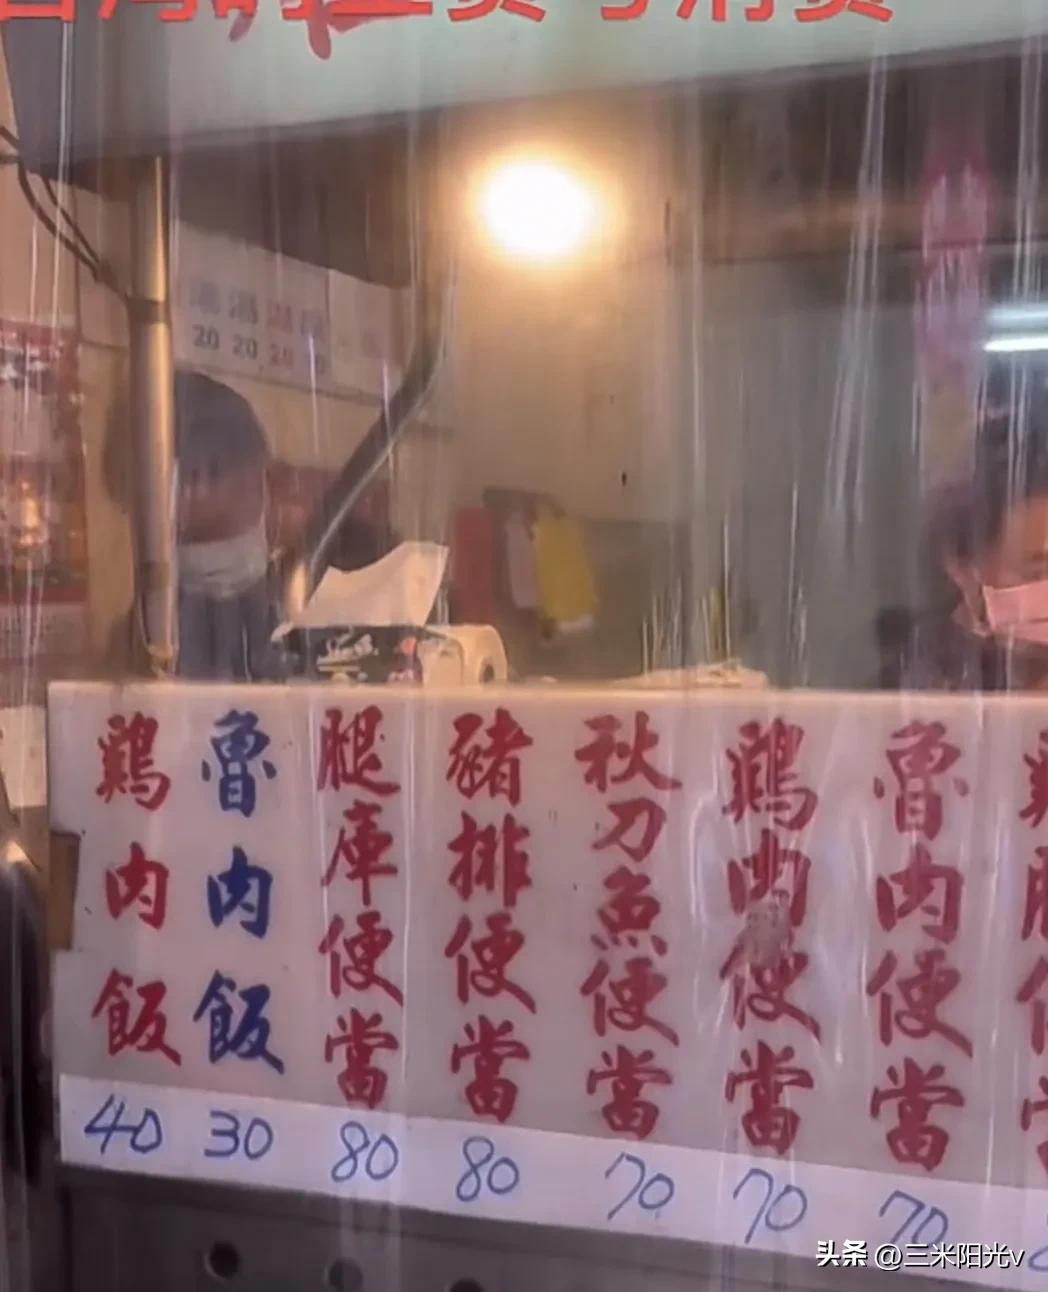 20 20 20
鷄肉飯
40
魯肉飯
30
腿庫便當
80
豬排便當
80
秋刀魚便當
70
鷄肉便當
70
魯肉便當
70
头条 @三米阳光v